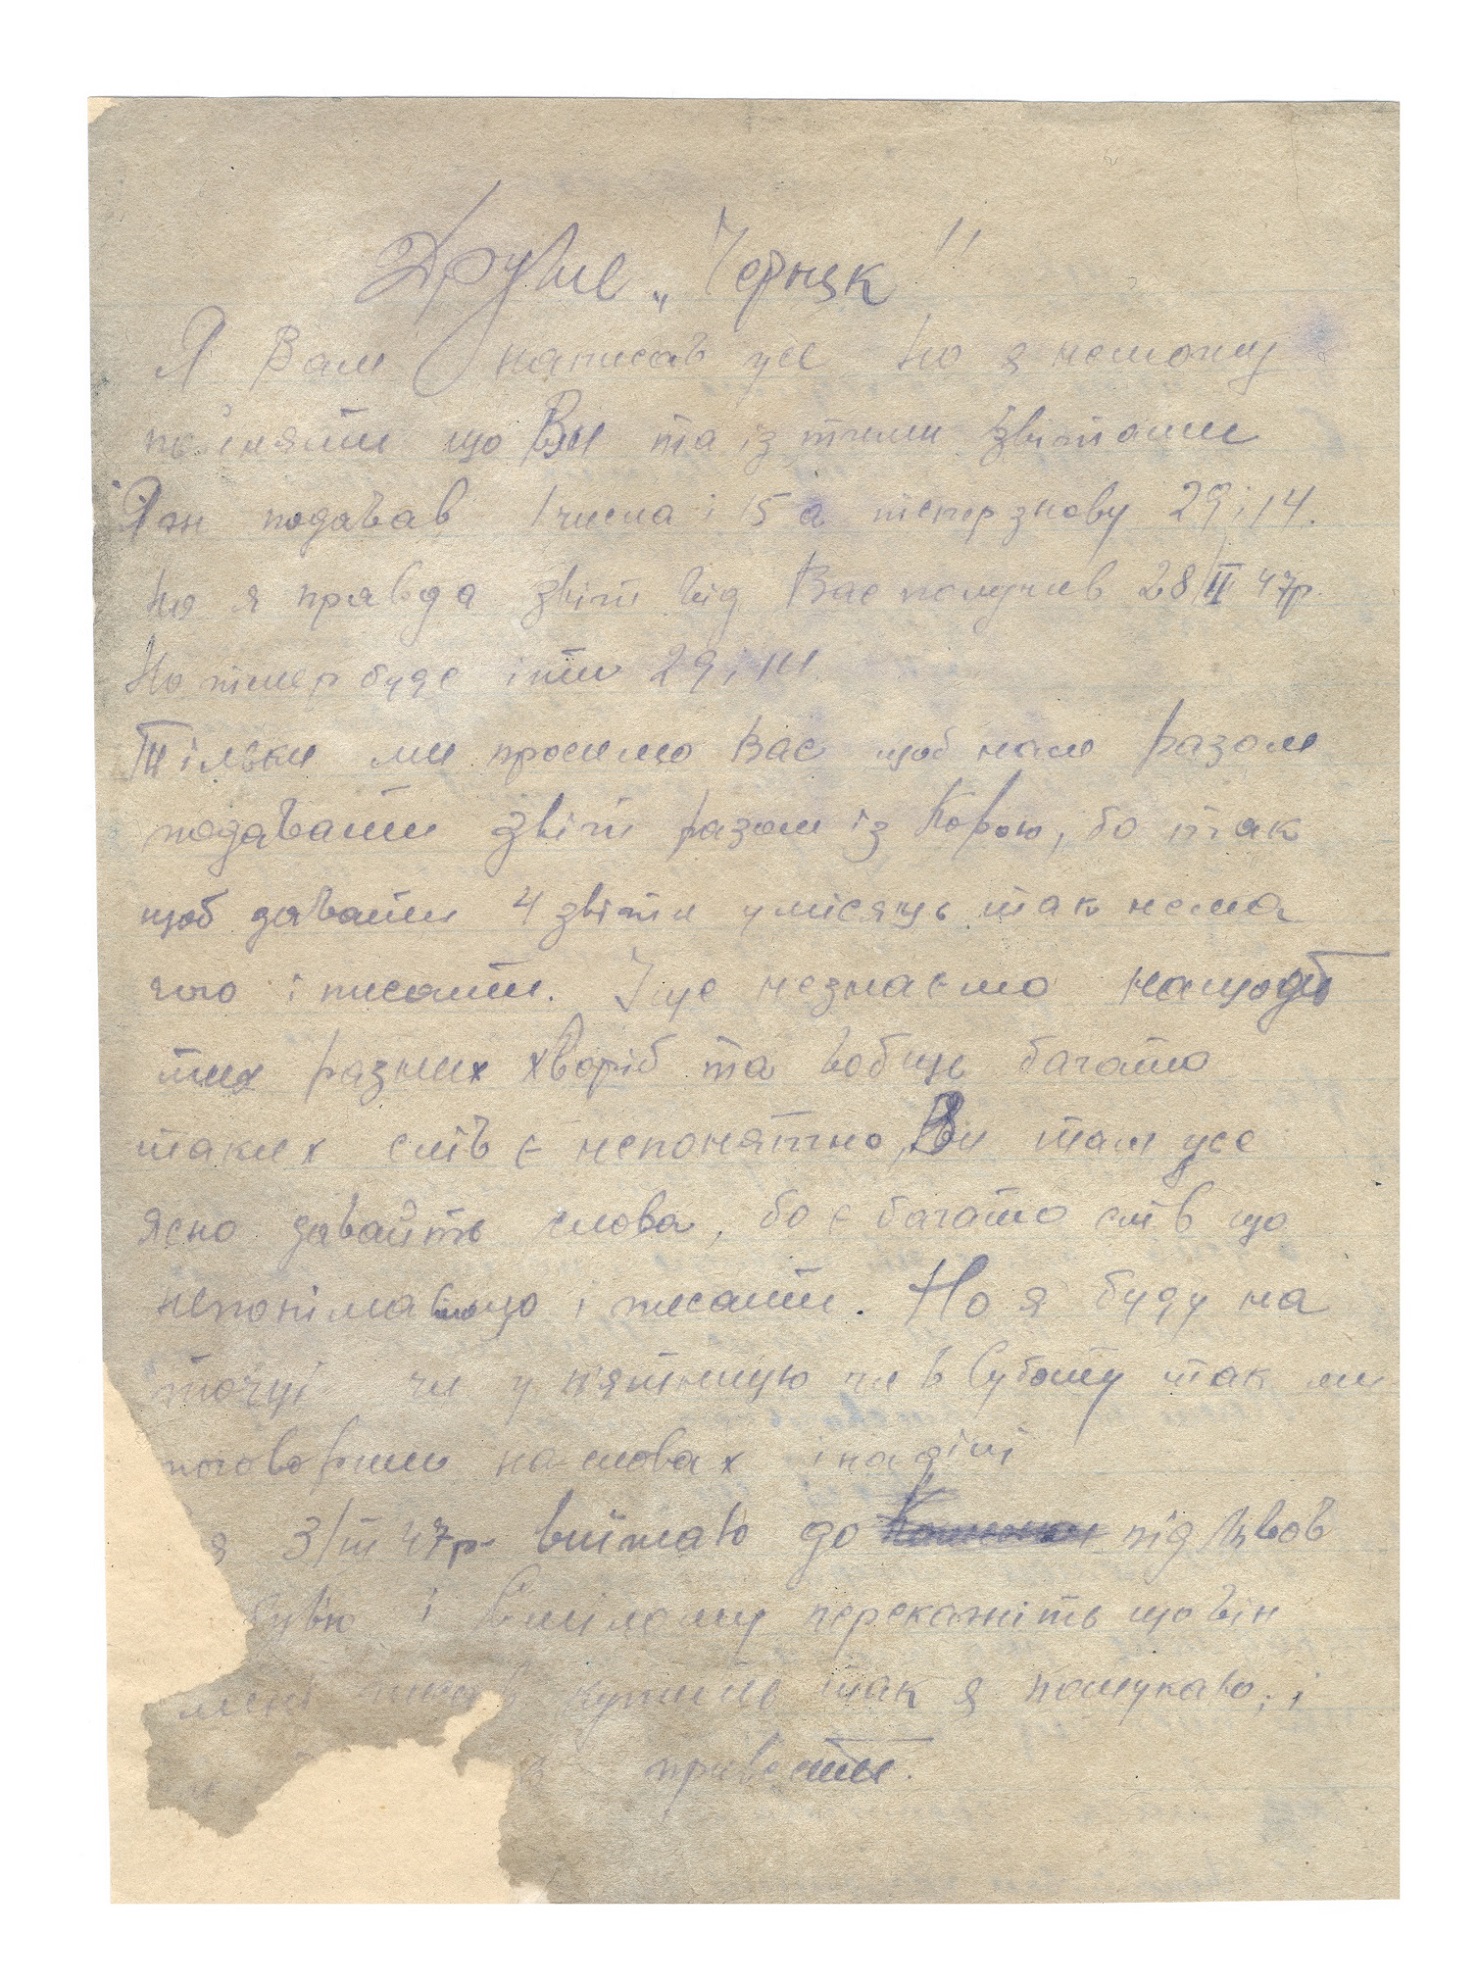 Друже „Черняк"!!
Я Вам написав усе но я неможу
поняти що Ви та із тими звітами
Яж подавав 1 числа і 15 а тепер знову 29 і 14.
Но я правда звіт від Вас получив 28/II 47р.
Но тепер буде іти 29 і 14.
Тільки ми просимо Вас щоб нам разом
подавати звіт разом із Корою, бо так
щоб давати 4 звіти умісяць так нема
чого і писати. І ще незнаємо
тих разних хворіб та вобще багато
таких слів є непонятно, Ви там усе
ясно давайте слова, бо є багато слів що
і писати. Но я буду на
точці чи у пятницю чи в Суботу так ми
поговорим на словах
я 3/III 47р. виїжаю до під Львов
і Смілому перекажіть що він
мені так я пошукаю; і
привезти.